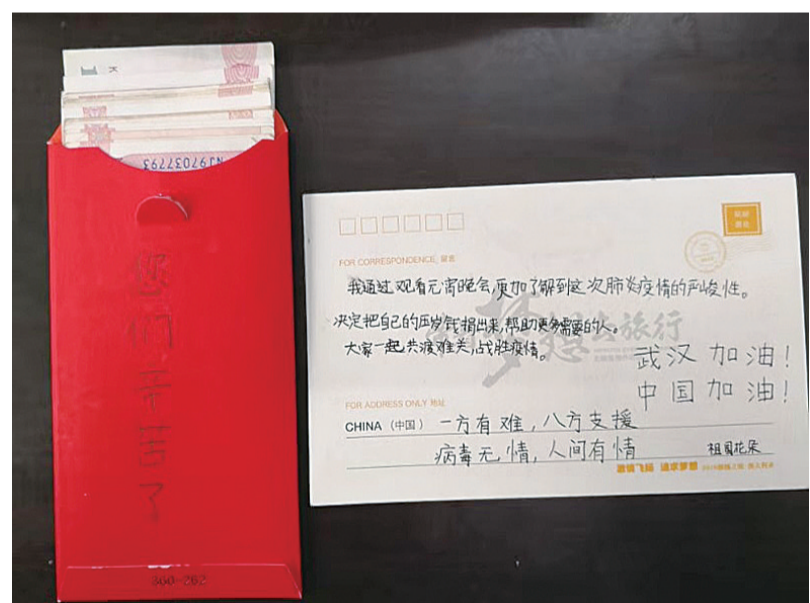 NJ97037793
您们辛苦了
360-262
FOR CORRESPONDENCE 留言
我通过观看元宵晚会,更加了解到这次肺炎疫情的严峻性。
决定把自己的压岁钱捐出来,帮助更多需要的人。
大家一起共渡难关,战胜疫情。
梦想去旅行
武汉加油!
中国加油!
FOR ADDRESS ONLY 地址
CHINA (中国) 一方有难,八方支援
病毒无情,人间有情
祖国花朵
激情飞扬 追求梦想